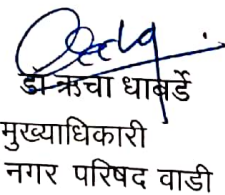 डॉ ऋचा धाबर्डे
मुख्याधिकारी
नगर परिषद वाडी